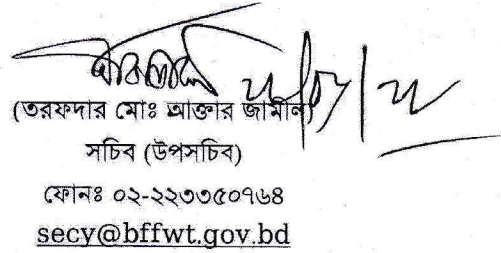 (তরফদার মোঃ আক্তার জামীল)
সচিব (উপসচিব)
ফোনঃ ০২-২২৩৩৫০৭৬৪
secy@bffwt.gov.bd